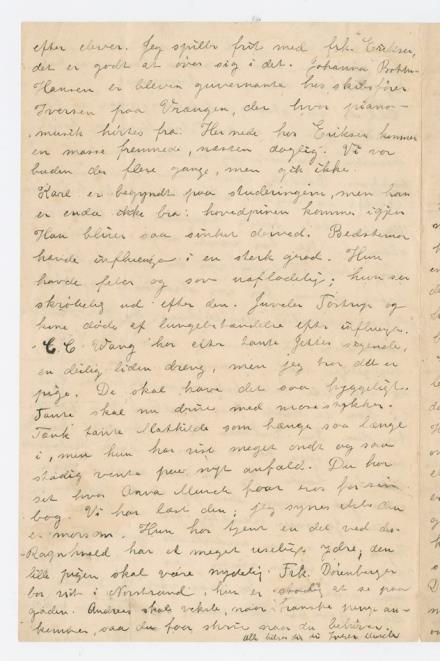 efter elever. Jeg spiller frit med frk. Eriksen,
det er godt at øve sig i det. Johanna
Hansen er bleven guvernante hos skibsfører
Iversen paa Vrangen, der hvor piano-
musik hørtes fra. Hernede hos Eriksen kommer
en masse fremmede, næsten daglig. Vi var
buden der flere gange, men gik ikke.
Karl er begyndt paa studeringen, men han
er enda ikke bra: hovedpinen kommer igjen
Han blir saa sint derved. Bedstemor
havde influenza i en sterk grad. Hun
havde feber og sov uafladelig; hun ser
skrøbelig ud efter den. Juveler Tostrup og
kone døde af lungebetændelse efter influenza.
C. C. Wang har efter tante Jettes sigende,
en deilig liden dreng, men jeg tror det er
pige. De skal have det saa hyggeligt.
Tante skal nu drive med
Tænk tante Mathilde som hænge saa længe
i, men hun har vist meget ondt og saa
stadig vente paa nyt anfald. Du har
set hvor Anna Munch faar ros for sin
bog. Vi har læst den; jeg synes ikke den
er morsom. Hun har tjent en del ved den
Ragnvald har et meget uselig ydre; den
lille pigen skal være nydelig. Frk.
bor vist i Nordstrand, hun er stadig at se paa
gaden. Andreas skal veksle, naar franske penge an-
kommer, saa du faar skrive naar du behøver.
Alle hilser